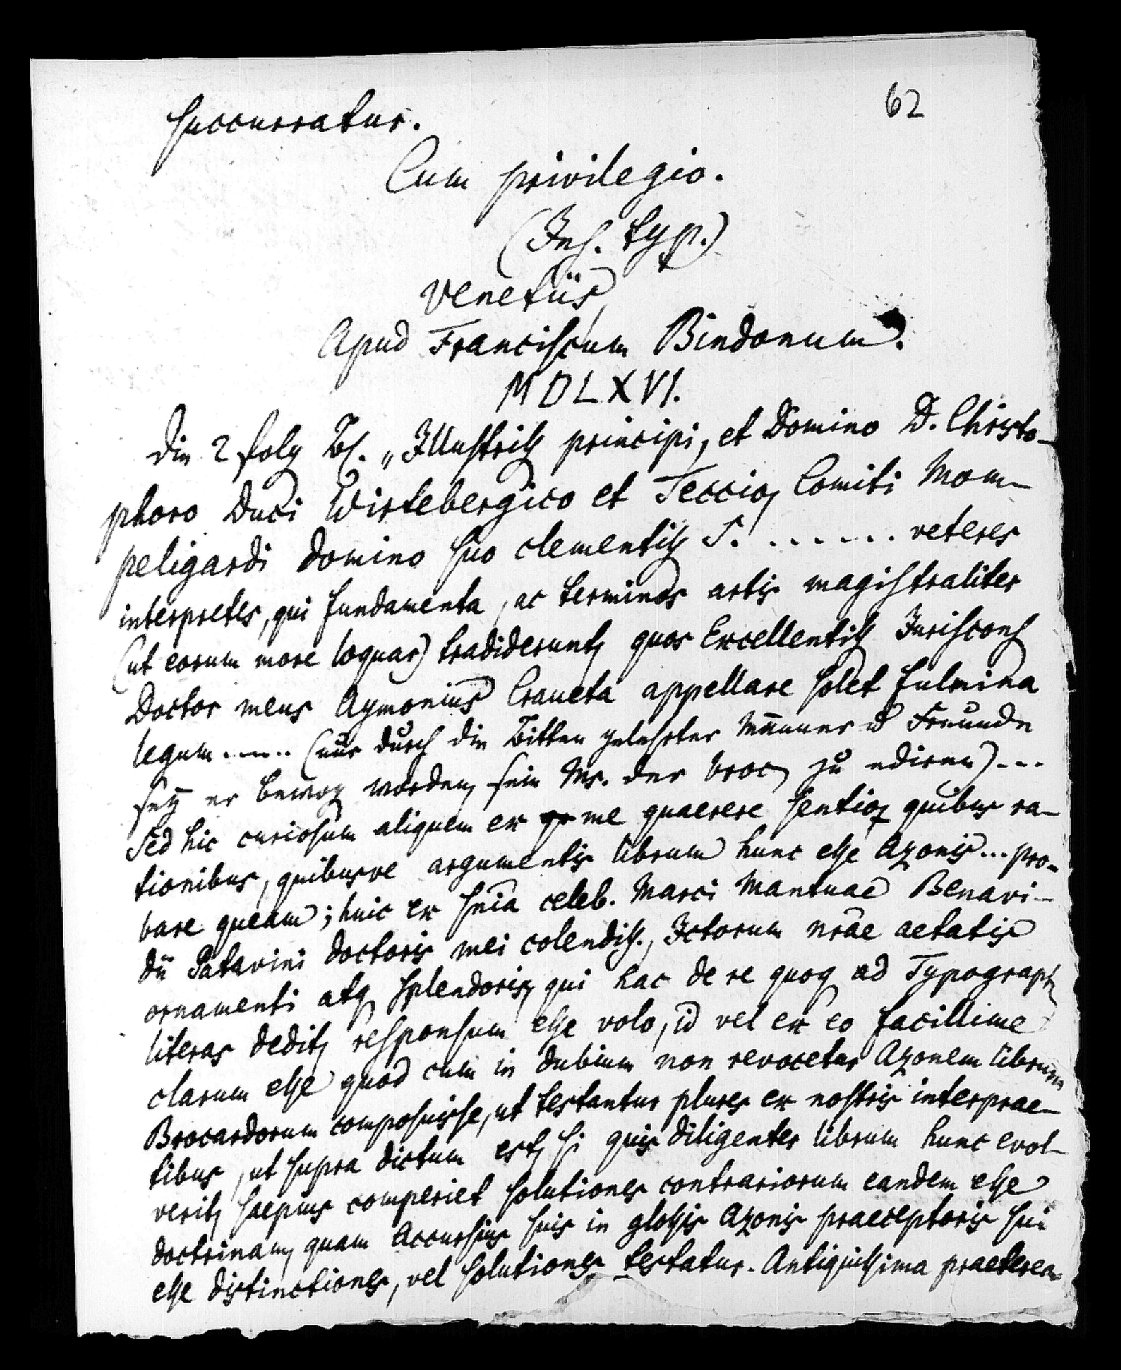 62
succurratur.
Cum privilegio.
(Ins. typ.)
Venetiis,
Apud Franciscum Bindonum.
MDLXVI.
Die 2 folg Bl. „Illustriss principi, et Domino D. Christo-
phoro Duci Wirtebergico et Teccio, Comiti Mom-
peligardi Domino suo clementiss S. . . . . . . veteres
interpretes, qui fundamenta, ac terminos artis magistraliter
(ut eorum more loquar) tradiderunt, quos Excellentiss Juriscons
Doctor meus Aymonius Craveta appellare solet fulmina
legum ..... (nur durch die Bitten gelehrter Männer u Freunde
sey er bewog worden, sein Ms. der broc, zu ediren) ...
Sed hic curiosum aliquem ex me quaerere sentio, quibus ra-
tionibus, quibusve argumentis librum hunc esse Azonis ... pro-
bare queam; huic ex snia celeb. Marci Mantuae Benavi-
dii Patavini Doctoris mei colendiss., Ictorum nrae aetatis
ornamenti atq splendoris, qui hac de re quoq ad Typograph
literas dedit, responsum esse volo, id vel ex eo facillime
clarum esse quod cum in dubium non revocetur Azonem librum
Brocardorum composuisse, ut testantur plures ex nostris interprae-
tibus, ut supra dictum est, si quis diligenter librum hunc evol-
verit, saepius comperiet solutiones contrariorum eandem esse
doctrinam, quam Accursius suis in glossis Azonis praeceptoris sui
esse distinctiones, vel solutiones testatur. Antiquissima praeterea